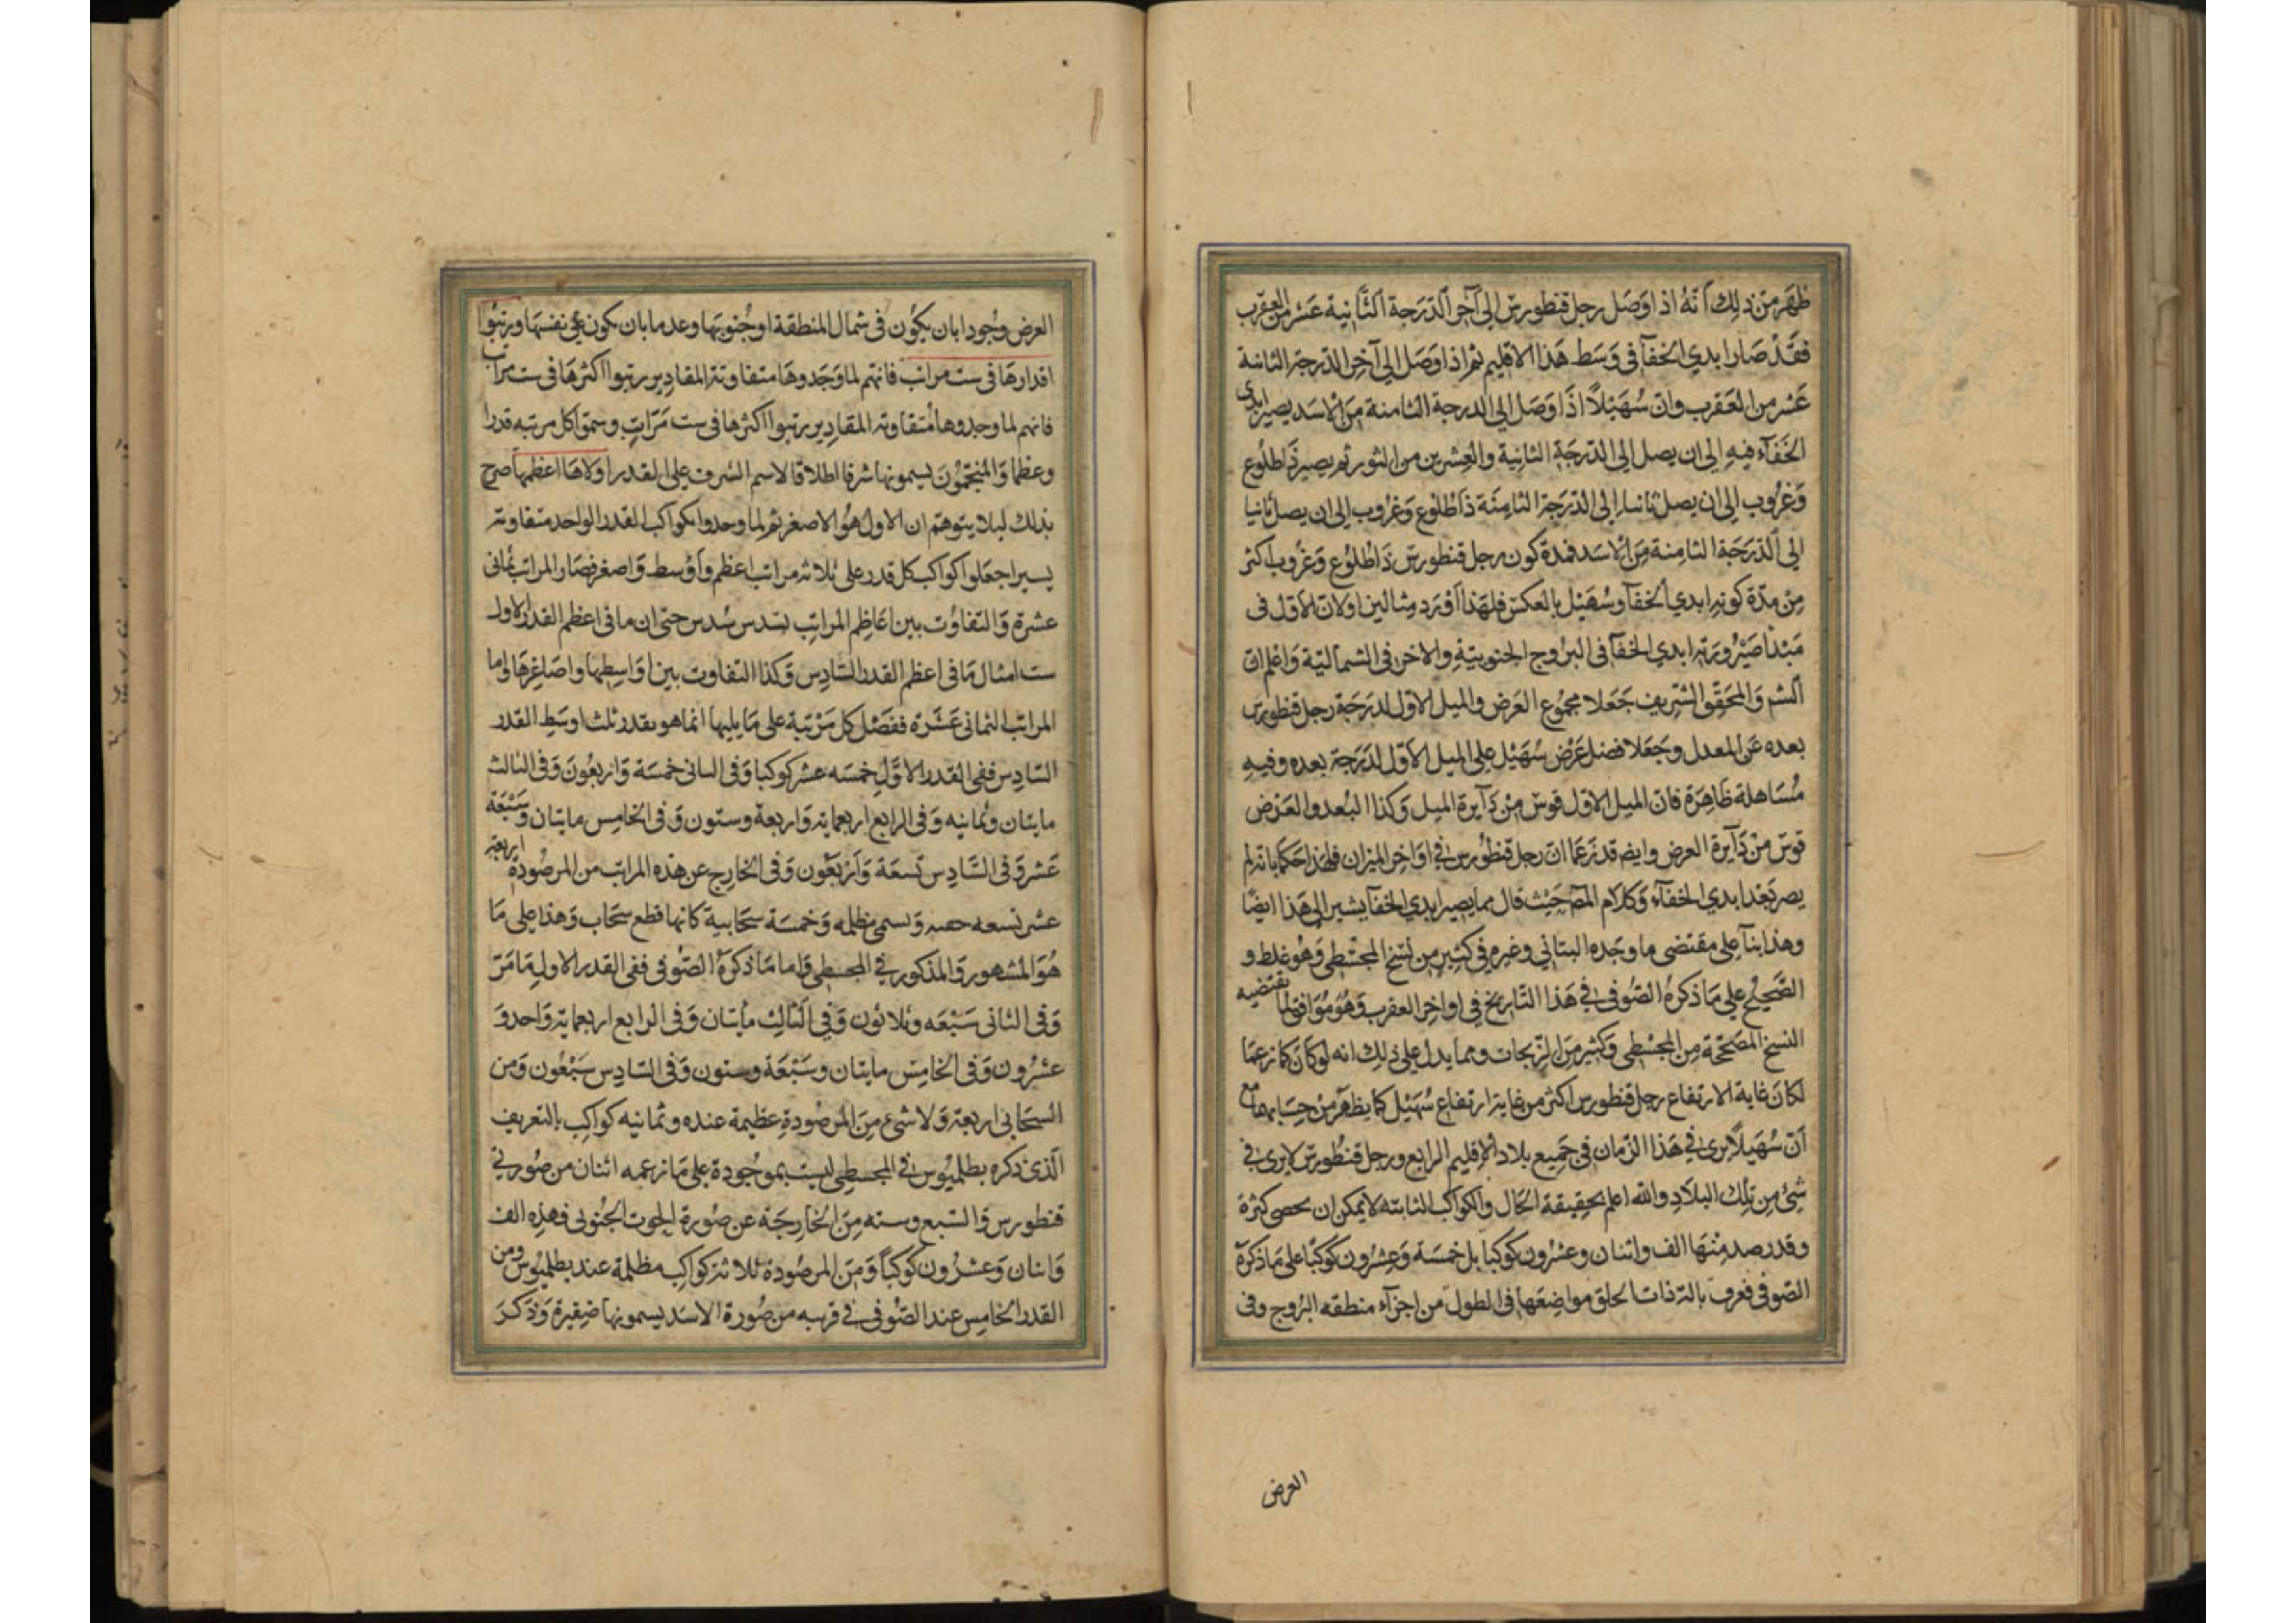 ظهر من ذلك انه اذا وصل رجل قنطورس الى آخر الدرجة الثانية عشر من العقرب
فقد صار ابدي الخفآ في وسط هذا الاقليم ثم اذا وصل الى آخر الدرجة الثانية
عشر من العقرب وان سهيلا اذا وصل الى الدرجة الثامنة من الاسد يصير ابدي
الخفآء فيه الى ان يصل الى الدرجة الثانية والعشرين من الثور ثم يصير ذا طلوع
وغروب الى ان يصل ثانيا الى الدرجة الثامنة ذا طلوع وغروب الى ان يصل ثانيا
الى الدرجة الثامنة من الاسد فمدة كون رجل قنطورس ذا طلوع وغروب اكثر
من مدة كونه ابدي الخفآ وسهيل بالعكس فلهذا اورد مثالين اولان الاول في
مبدا صيرورته ابدي الخفآ في البروج الجنوبية والاخر في الشمالية واعلم ان
الشم والمحقق الشريف جعلا مجموع العرض والميل الاول لدرجة رجل قنطورس
بعده عن المعدل وجعلا فضل عرض سهيل على الميل الاول لدرجة بعده وفيه
مساهلة ظاهرة فان الميل الاول قوس من دآيرة الميل وكذا البعد والعرض
قوس من دآيرة العرض وايضم قد زعما ان رجل قنطورس في اواخر الميزان فلهذا حكما بانه لم
يصر بعد ابدي الخفآء وكلام المص حيث قال مما يصير ابدي الخفآ يشير الى هذا ايضا
وهذا بنآ على مقتضى ما وجده البتاني وغيره في كثير من نسخ المجسطي وهو غلط و
الصحيح على ما ذكره الصوفي في هذا التاريخ في اواخر العقرب وهو موافق لما يقتضيه
النسخ المصححة من المجسطي وكثير من الزيجات ومما يدل على ذلك انه لو كان كما زعما
لكان غاية الارتفاع رجل قنطورس اكثر من غاية ارتفاع سهيل كما يظهر من حسابهما مع
ان سهيلا يرى في هذا الزمان في جميع بلاد الاقليم الرابع ورجل قنطورس لا يرى في
شئ من تلك البلاد والله اعلم بحقيقة الحال والكواكب الثابته لا يمكن ان يحصى كثرة
وقد رصد منها الف واثنان وعشرون كوكبا بل خمسة وعشرون كوكبا على ما ذكره
الصوفي فعرف بالة ذات الحلق مواضعها في الطول من اجزآء منطقه البروج وفي
العرض
العرض وجودا بان يكون في شمال المنطقة او جنوبها وعدما بان يكون على نفسها ورتبوا
اقدارها في ست مراتب فانهم لما وجدوها متفاوتة المقادير رتبوا اكثرها في ست مراتب
فانهم لما وجدوها متفاوته المقادير رتبوا اكثرها في ست مراتب وسموا كل مرتبه قدرا
وعظما والمنجمون يسمونها شرفا اطلاقا لاسم الشرف على القدر اولاها اعظمها صرح
بذلك ليلا يتوهم ان الاول هو الاصغر ثم لما وجدوا كواكب القدر الواحد متفاوته
يسيرا جعلوا كواكب كل قدر على ثلاثه مراتب اعظم واوسط واصغر فصار المراتب ثماني
عشرة والتفاوت بين اعاظم المراتب بسدس سدس حتى ان ما في اعظم القدر الاول
ست امثال ما في اعظم القدر السادس وكذا التفاوت بين اواسطها واصاغرها واما
المراتب الثماني عشرة ففضل كل مرتبة على ما يليها انما هو بقدر ثلث اوسط القدر
السادس ففي القدر الاول خمسه عشر كوكبا وفي الثاني خمسة واربعون وفي الثالث
مايتان وثمانيه وفي الرابع اربعمايه واربعة وستون وفي الخامس مايتان وسبعة
عشر وفي السادس تسعة واربعون وفي الخارج عن هذه المراتب من المرصودة اربعة
عشر تسعه خفيه وتسمى مظلمه وخمسة سحابية كانها قطع سحاب وهذا على ما
هو المشهور والمذكور في المجسطي واما ما ذكره الصوفي ففي القدر الاول ما مر
وفي الثاني سبعه وثلاثون وفي الثالث مأيتان وفي الرابع اربعمايه واحد و
عشرون وفي الخامس مايتان وسبعة وستون وفي السادس سبعون ومن
السحابي اربعة ولا شئ من المرصودة عظيمة عنده وثمانيه كواكب بالتعريف
الذي ذكره بطلميوس في المجسطي ليست بموجودة على ما زعمه اثنان من صورتي
قنطورس والسبع وسته من الخارجة عن صورة الحوت الجنوبي فهذه الف
واثنان وعشرون كوكبا ومن المرصودة ثلاثة كواكب مظلمة عند بطلميوس ومن
القدر الخامس عند الصوفي في قربه من صورة الاسد يسمونها ضفيرة وذكر